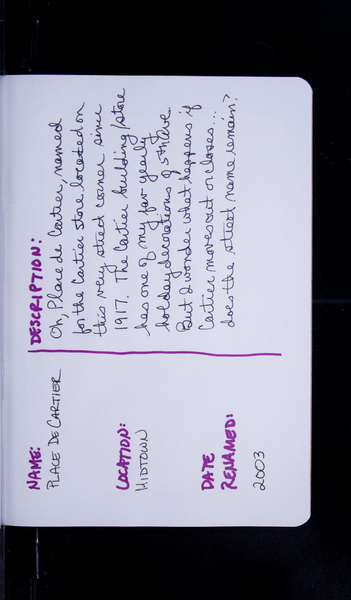 NAME:
PLACE DE CARTIER
LOCATION:
MIDTOWN
DATE
RENAMED:
2003
DESCRIPTION:
Oh, Place de Cartier, named
for the Cartier store located on
this very street corner since
1917. The Cartier building/store
has one of my fav yearly
holiday decorations of 5th Ave.
But I wonder what happens if
Cartier moves out or closes...
does the street name remain?